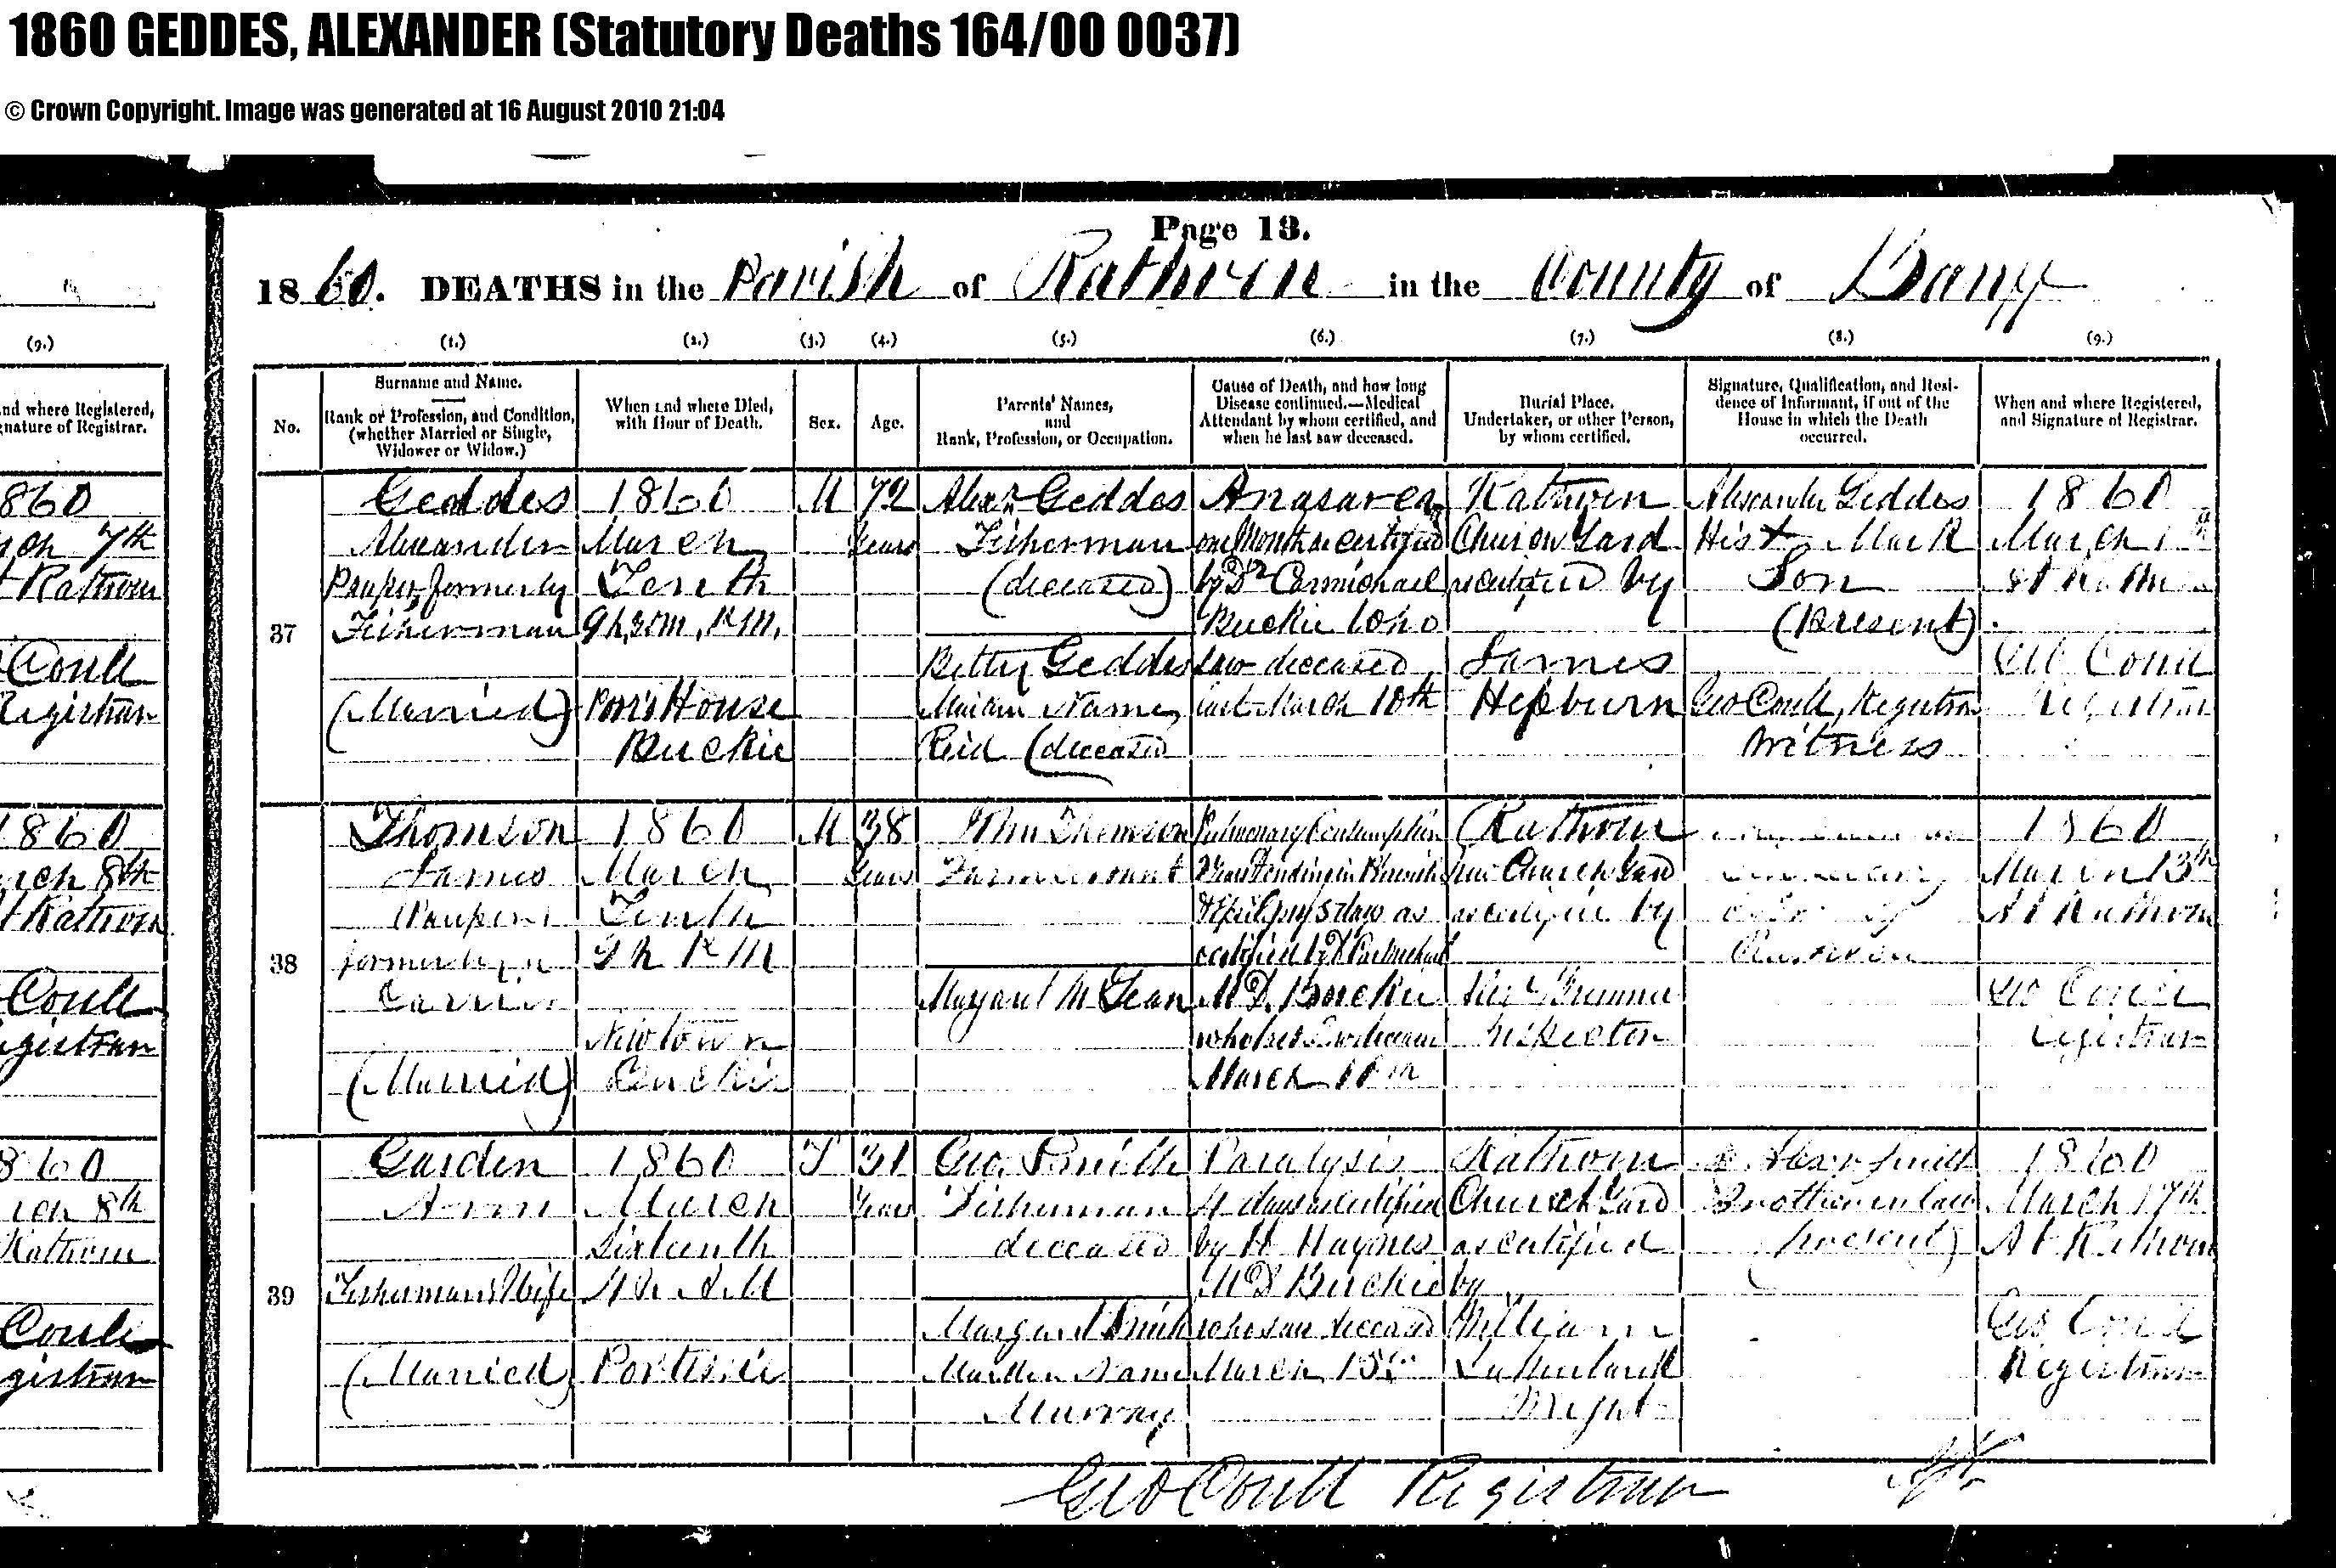 1860 GEDDES, ALEXANDER (Statutory Deaths 164/00 0037)
© Crown Copyright. Image was generated at 16 August 2010 21:04
Page 13.
1860. DEATHS in the Parish of Rathven in the County of Banff
(9.)
(1.) (2.) (3.) (4.) (5.) (6.) (7.) (8.) (9.)
nd where Registered,
nature of Registrar.
No.
Surname and Name.
Rank or Profession, and Condition,
(whether Married or Single,
Widower or Widow.)
When and where Died,
with Hour of Death.
Sex.
Age.
Parents' Names,
and
Rank, Profession, or Occupation.
Cause of Death, and how long
Disease continued.—Medical
Attendant by whom certified, and
when he last saw deceased.
Burial Place.
Undertaker, or other Person,
by whom certified.
Signature, Qualification, and Resi-
dence of Informant, if out of the
House in which the Death
occurred.
When and where Registered,
and Signature of Registrar.
860
7th
Rathven
Coull
Registrar
37
Geddes
Alexander
Pauper, formerly
Fisherman
(Married)
1860
March
Tenth
9h, 30m, P.M.
Poor's House
Buckie
M
72
Years
Alexr Geddes
Fisherman
(deceased)
Betty Geddes
Maiden Name
Reid (deceased
Anasarca
one Month as certified
by Dr Carmichael
Buckie who
saw deceased
last March 10th
Rathven
Church Yard
as certified by
James
Hepburn
Alexander Geddes
His x Mark
Son
(Present).
Geo Coull, Registrar
Witness
1860
March
At Rathven
Geo Coull
Registrar
1860
8th
Rathven
Coull
gistrar
38
Thomson
James
Pauper
formerly a
Carrier
(Married)
1860
March
Tenth
h P.M
Newtown
Buckie
M
38
Years
John Thomson
Margaret McLean
Pulmonary Consumption
5 days as
certified by Dr Carmichael
M.D. Buckie
who last saw deceased
March 10th
Rathven
New Church Yard
as certified by
Inspector
Rathven
1860
March 13th
At Rathven
Geo Coull
Registrar
860
8th
Rathven
Coull
gistrar
39
Garden
Ann
Fisherman's Wife
(Married)
1860
March
Sixteenth
4 h A.M
Portessie
F
31
Years
Geo. Smith
Fisherman
deceased
Margaret Smith
Maiden Name
Murray
Paralysis
4 days as certified
by H Haynes
M.D Buckie
who saw deceased
March 15th
Rathven
Church Yard
as certified
by
William
Sutherland
Wright
Smith
Brother in law
(present)
1860
March 17th
At Rathven
Geo Coull
Registrar
Geo Coull Registrar